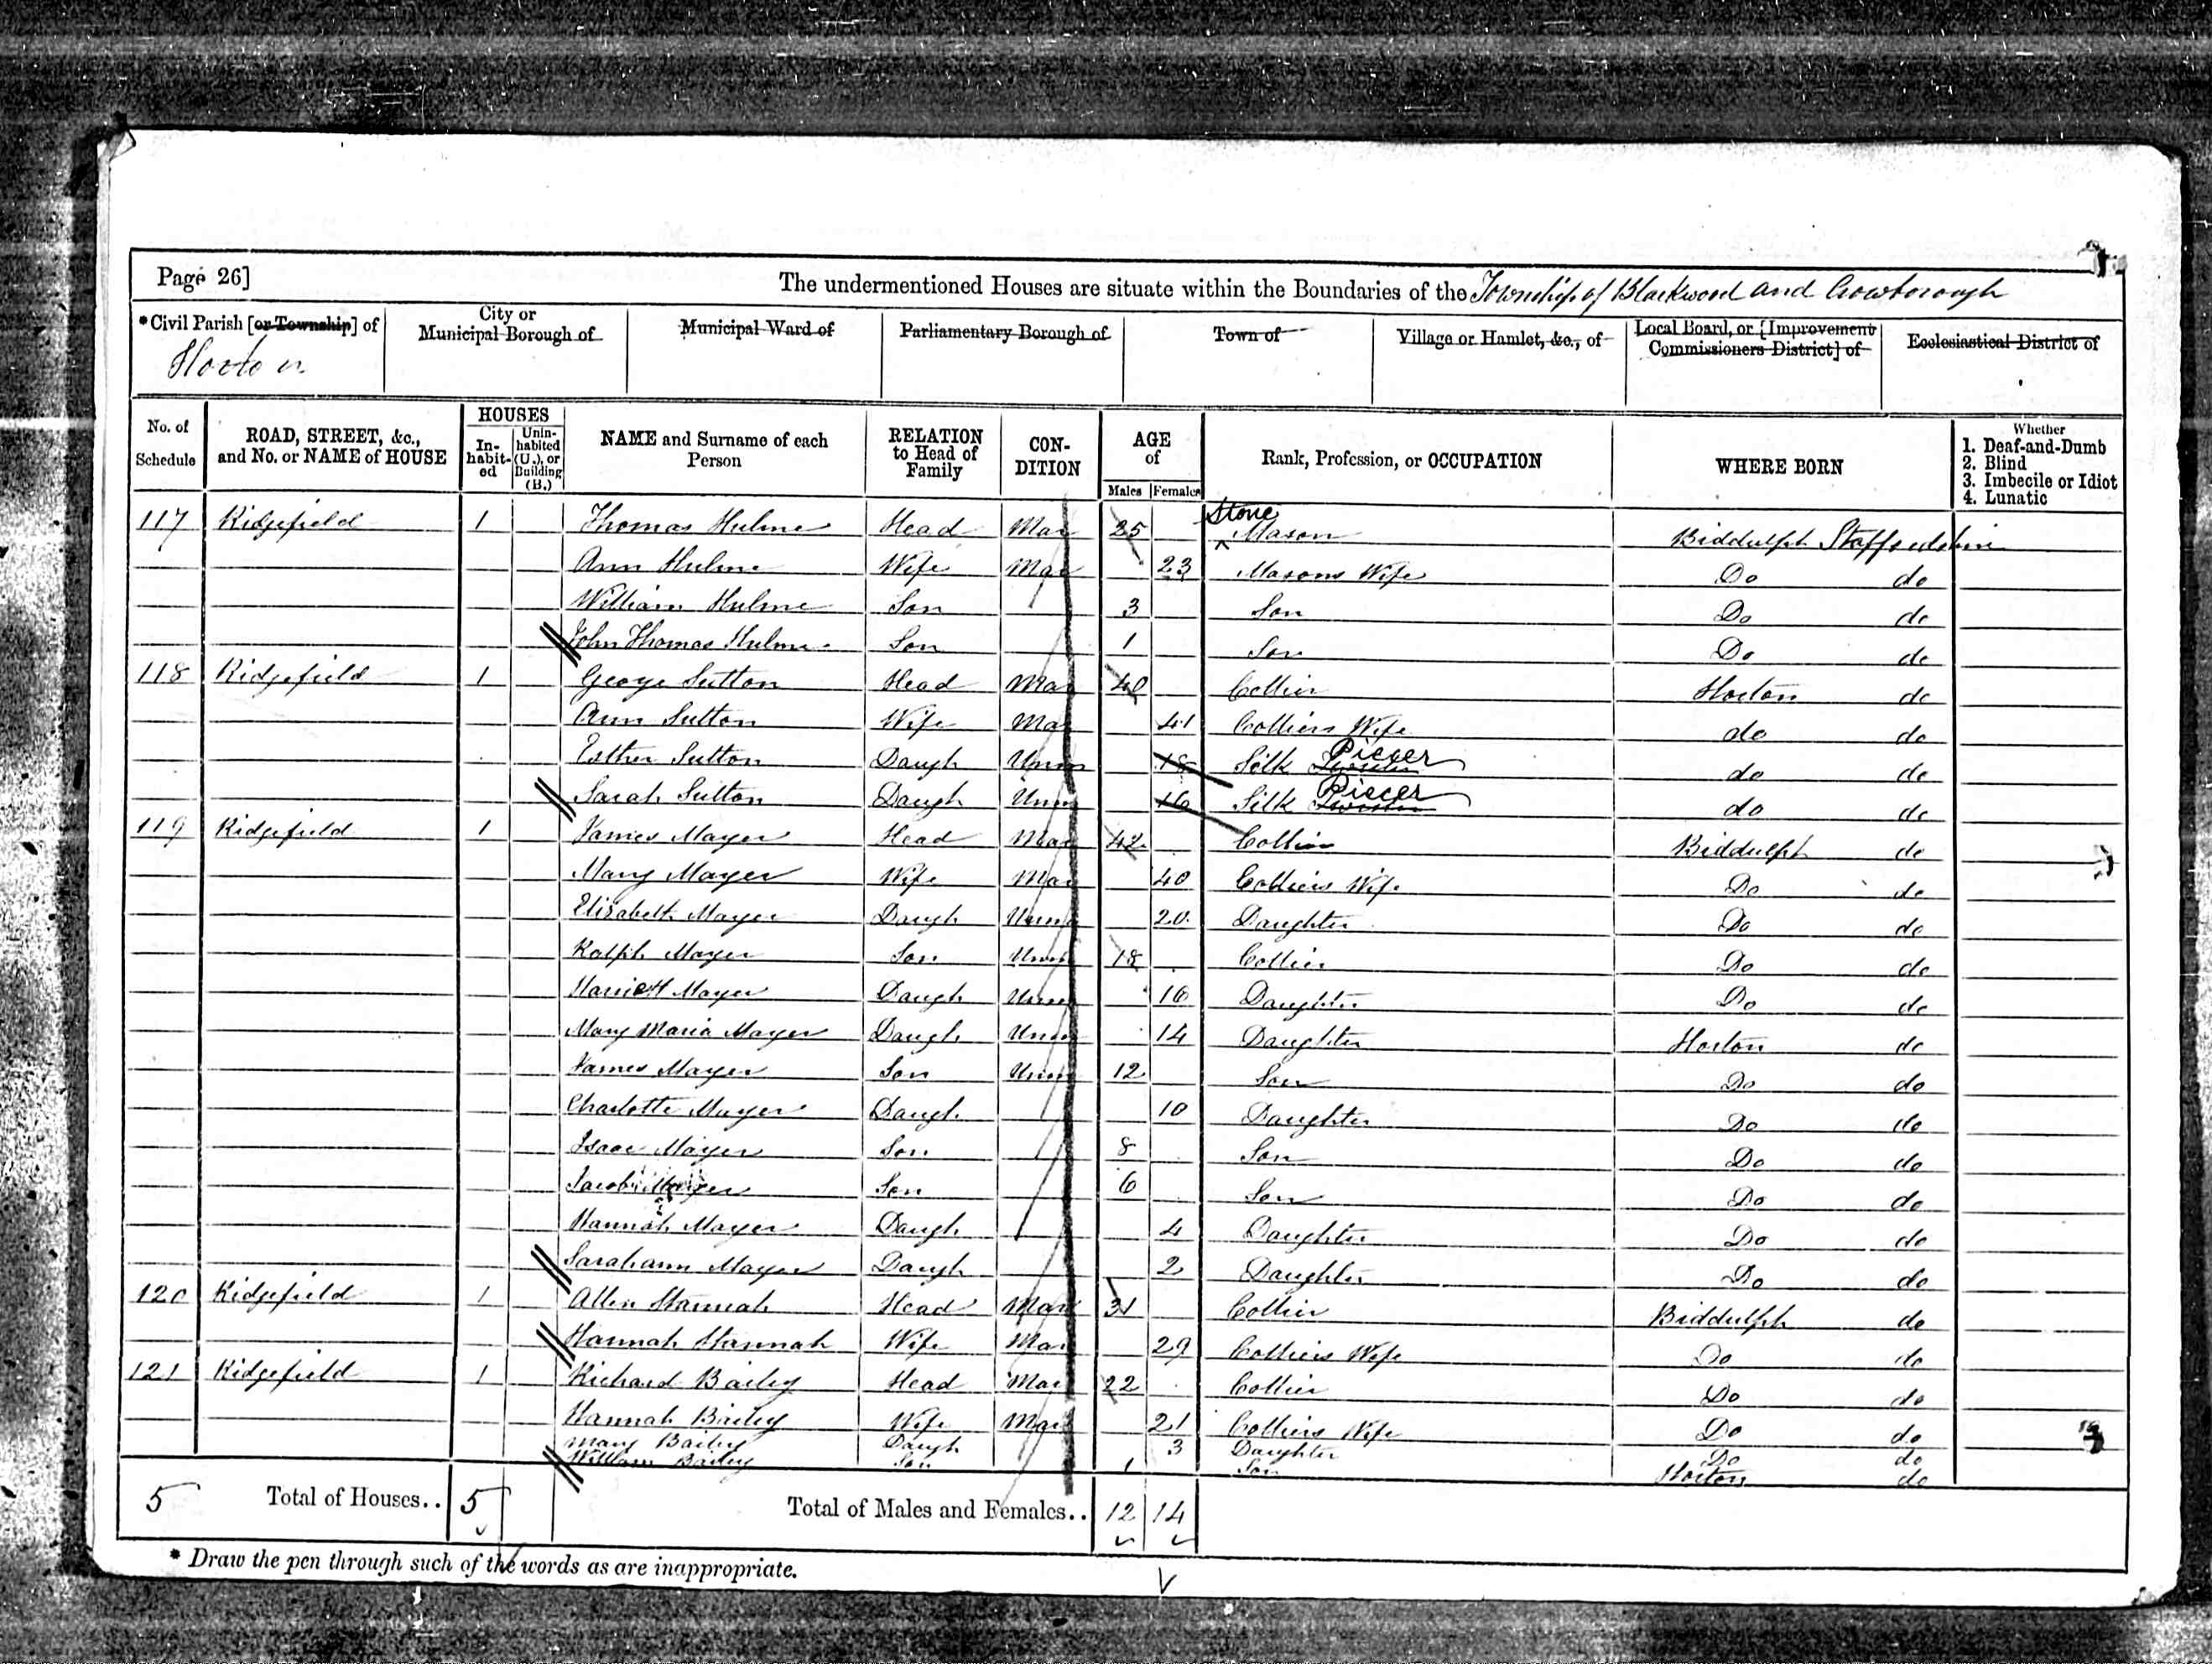 Page 26] The undermentioned Houses are situate within the Boundaries of the Township of Blackwood and Crowborough
*Civil Parish [or Township] of City or Municipal Borough of Municipal Ward of Parliamentary Borough of Town of Village or Hamlet, &c., of Local Board, or [Improvement Commissioners District] of Ecclesiastical District of
Horton
No. of Schedule ROAD, STREET, &c., and No. or NAME of HOUSE HOUSES In-habit-ed Unin-habited (U.), or Building (B.) NAME and Surname of each Person RELATION to Head of Family CON-DITION AGE of Males Females Rank, Profession, or OCCUPATION WHERE BORN Whether 1. Deaf-and-Dumb 2. Blind 3. Imbecile or Idiot 4. Lunatic
117 Ridgefield 1 Thomas Hulme Head Mar 25 Stone Mason Biddulph Staffordshire
Ann Hulme Wife Mar 23 Masons Wife Do do
William Hulme Son 3 Son Do do
John Thomas Hulme Son 1 Son Do do
118 Ridgefield 1 George Sutton Head Mar 40 Collier Horton do
Ann Sutton Wife Mar 41 Colliers Wife do do
Esther Sutton Daugh Unm 18 Silk Piecer do do
Sarah Sutton Daugh Unm 16 Silk Piecer do do
119 Ridgefield 1 James Mayer Head Mar 42 Collier Biddulph do
Mary Mayer Wife Mar 40 Colliers Wife Do do
Elizabeth Mayer Daugh Unm 20 Daughter Do do
Ralph Mayer Son Unm 18 Collier Do do
Harriett Mayer Daugh Unm 16 Daughter Do do
Mary Maria Mayer Daugh Unm 14 Daughter Horton do
James Mayer Son Unm 12 Son Do do
Charlotte Mayer Daugh 10 Daughter Do do
Isaac Mayer Son 8 Son Do do
Jacob Mayer Son 6 Son Do do
Hannah Mayer Daugh 4 Daughter Do do
Sarahann Mayer Daugh 2 Daughter Do do
120 Ridgefield 1 Allen Hannah Head Mar 31 Collier Biddulph do
Hannah Hannah Wife Mar 29 Colliers Wife Do do
121 Ridgefield 1 Richard Bailey Head Mar 22 Collier Do do
Hannah Bailey Wife Mar 21 Colliers Wife Do do
Mary Bailey Daugh 3 Daughter Do do
William Bailey Son 1 Son Horton do
5 Total of Houses.. 5 Total of Males and Females.. 12 14
* Draw the pen through such of the words as are inappropriate.